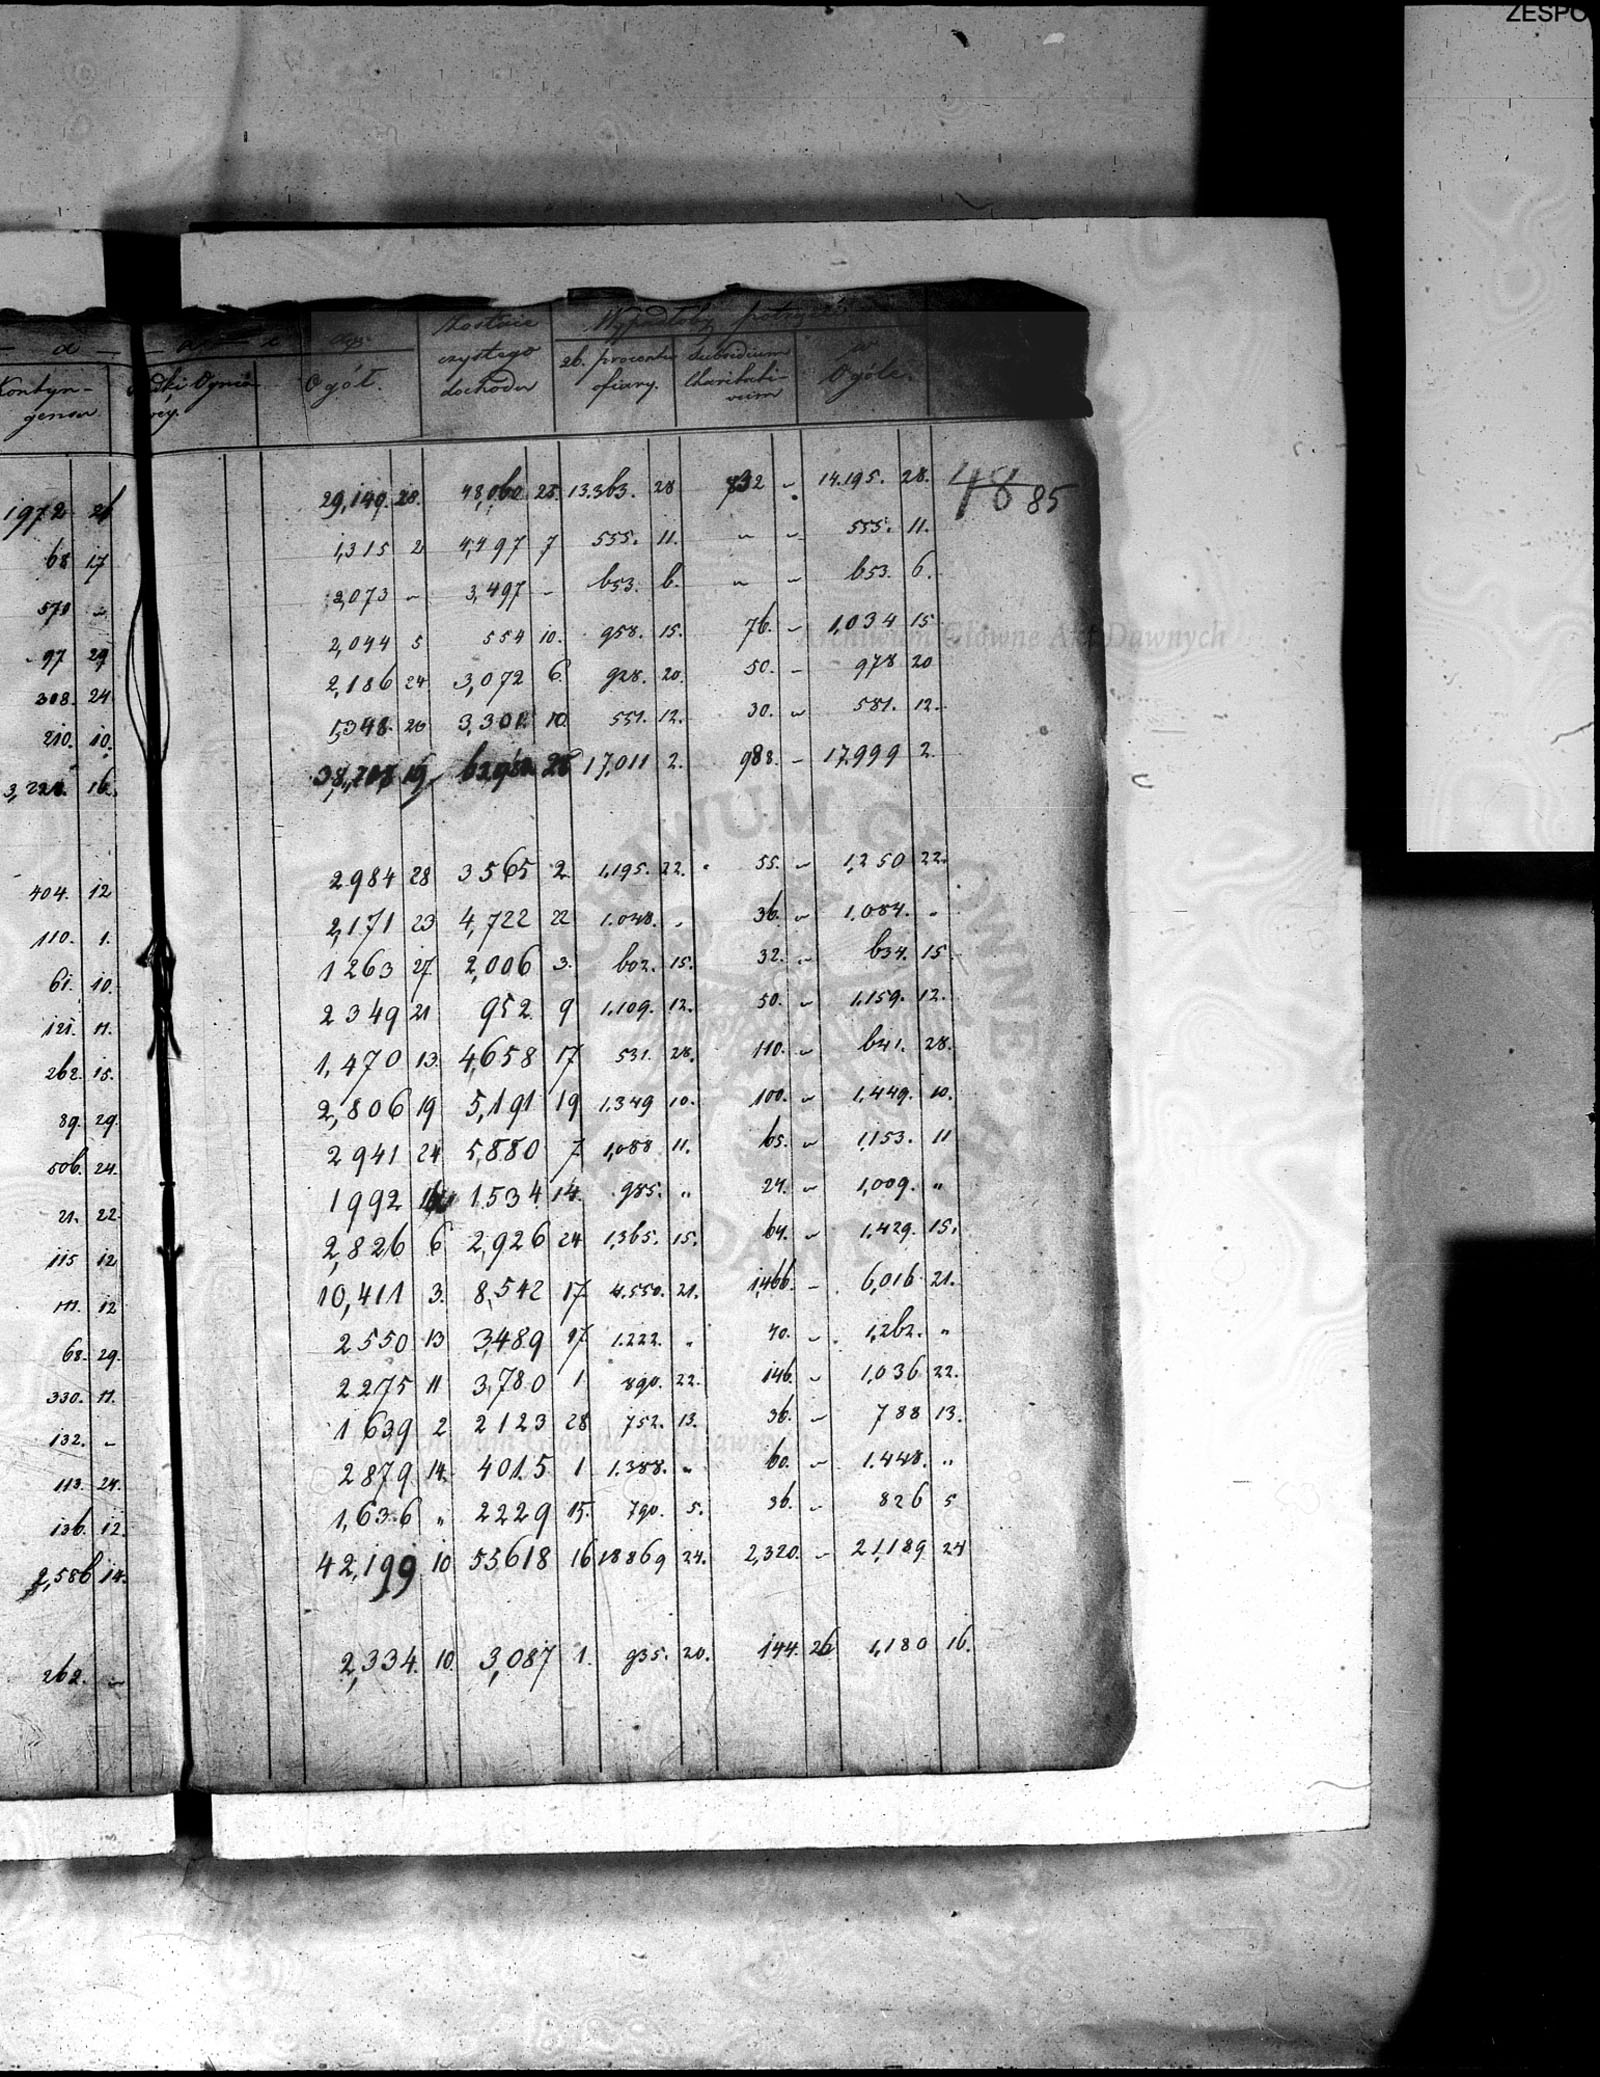 ZESPO
Zostaie
czystego
dochodu
Wypadłoby
26. procentu
ofiary.
Subsidium
Charitati-
vum
w
Ogóle.
Ogół.
Kontyn-
gensu
1972
68 17
570 „
97 29
308. 24
210. 10.
16.
404. 12
110. 1.
61. 10.
121. 11.
262. 15.
89. 29.
506. 24.
21. 22
115 12
111. 12
68. 29.
330. 11.
132. „
113. 24.
136. 12.
2,586 14.
262. „
29,149. 28. 48,060 28. 13.363. 28 832 „ 14.195. 28. 48 85
1,315 2 4,497 7 555. 11. „ „ 555. 11.
2,073 „ 3,497 „ 653. 6. „ „ 653. 6.
2,044 5 554 10. 958. 15. 76. „ 1,034 15
2,186 24 3,072 6. 928. 20. 50. „ 978 20
1,348. 20 3,301. 10 551. 12. 30. „ 581. 12.
17,011 2. 988. „ 17,999 2.
2984 28 3565 2 1,195. 22. 55. „ 1,250 22.
2,171 23 4,722 22 1.048. „ 36. „ 1,084. „
1263 27 2,006 3. 602. 15. 32. „ 634. 15
2349 21 952 9 1,109. 12. 50. „ 1,159. 12.
1,470 13. 4,658 17 531. 28. 110. „ 641. 28.
2,806 19 5,191 19 1.349 10. 100. „ 1,449. 10.
2941 24 5,880 7 1,088 11. 65. „ 1,153. 11
1992 1534 14. 985. „ 24. „ 1,009. „
2,826 6 2,926 24 1,365. 15. 64. „ 1,429. 15.
10,411 3. 8,542 17 4.550. 21. 1,466. „ 6,016 21.
2550 13 3,489 17 1.222. „ 40. „ 1,262. „
2275 11 3,780 1 890. 22. 146. „ 1,036 22.
1639 2 2123 28 752. 13. 36. „ 788 13.
2879 14. 4015 1 1.388. „ 60. „ 1.448. „
1,636 „ 2229 15. 790. 5. 36. „ 826 5
42,199 10 53618 16 18869 24. 2,320. „ 21,189 24
2,334. 10. 3,087 1. 935. 20. 144. 26 1,180 16.
Archiwum Główne Akt Dawnych
Archiwum Główne Akt Dawnych